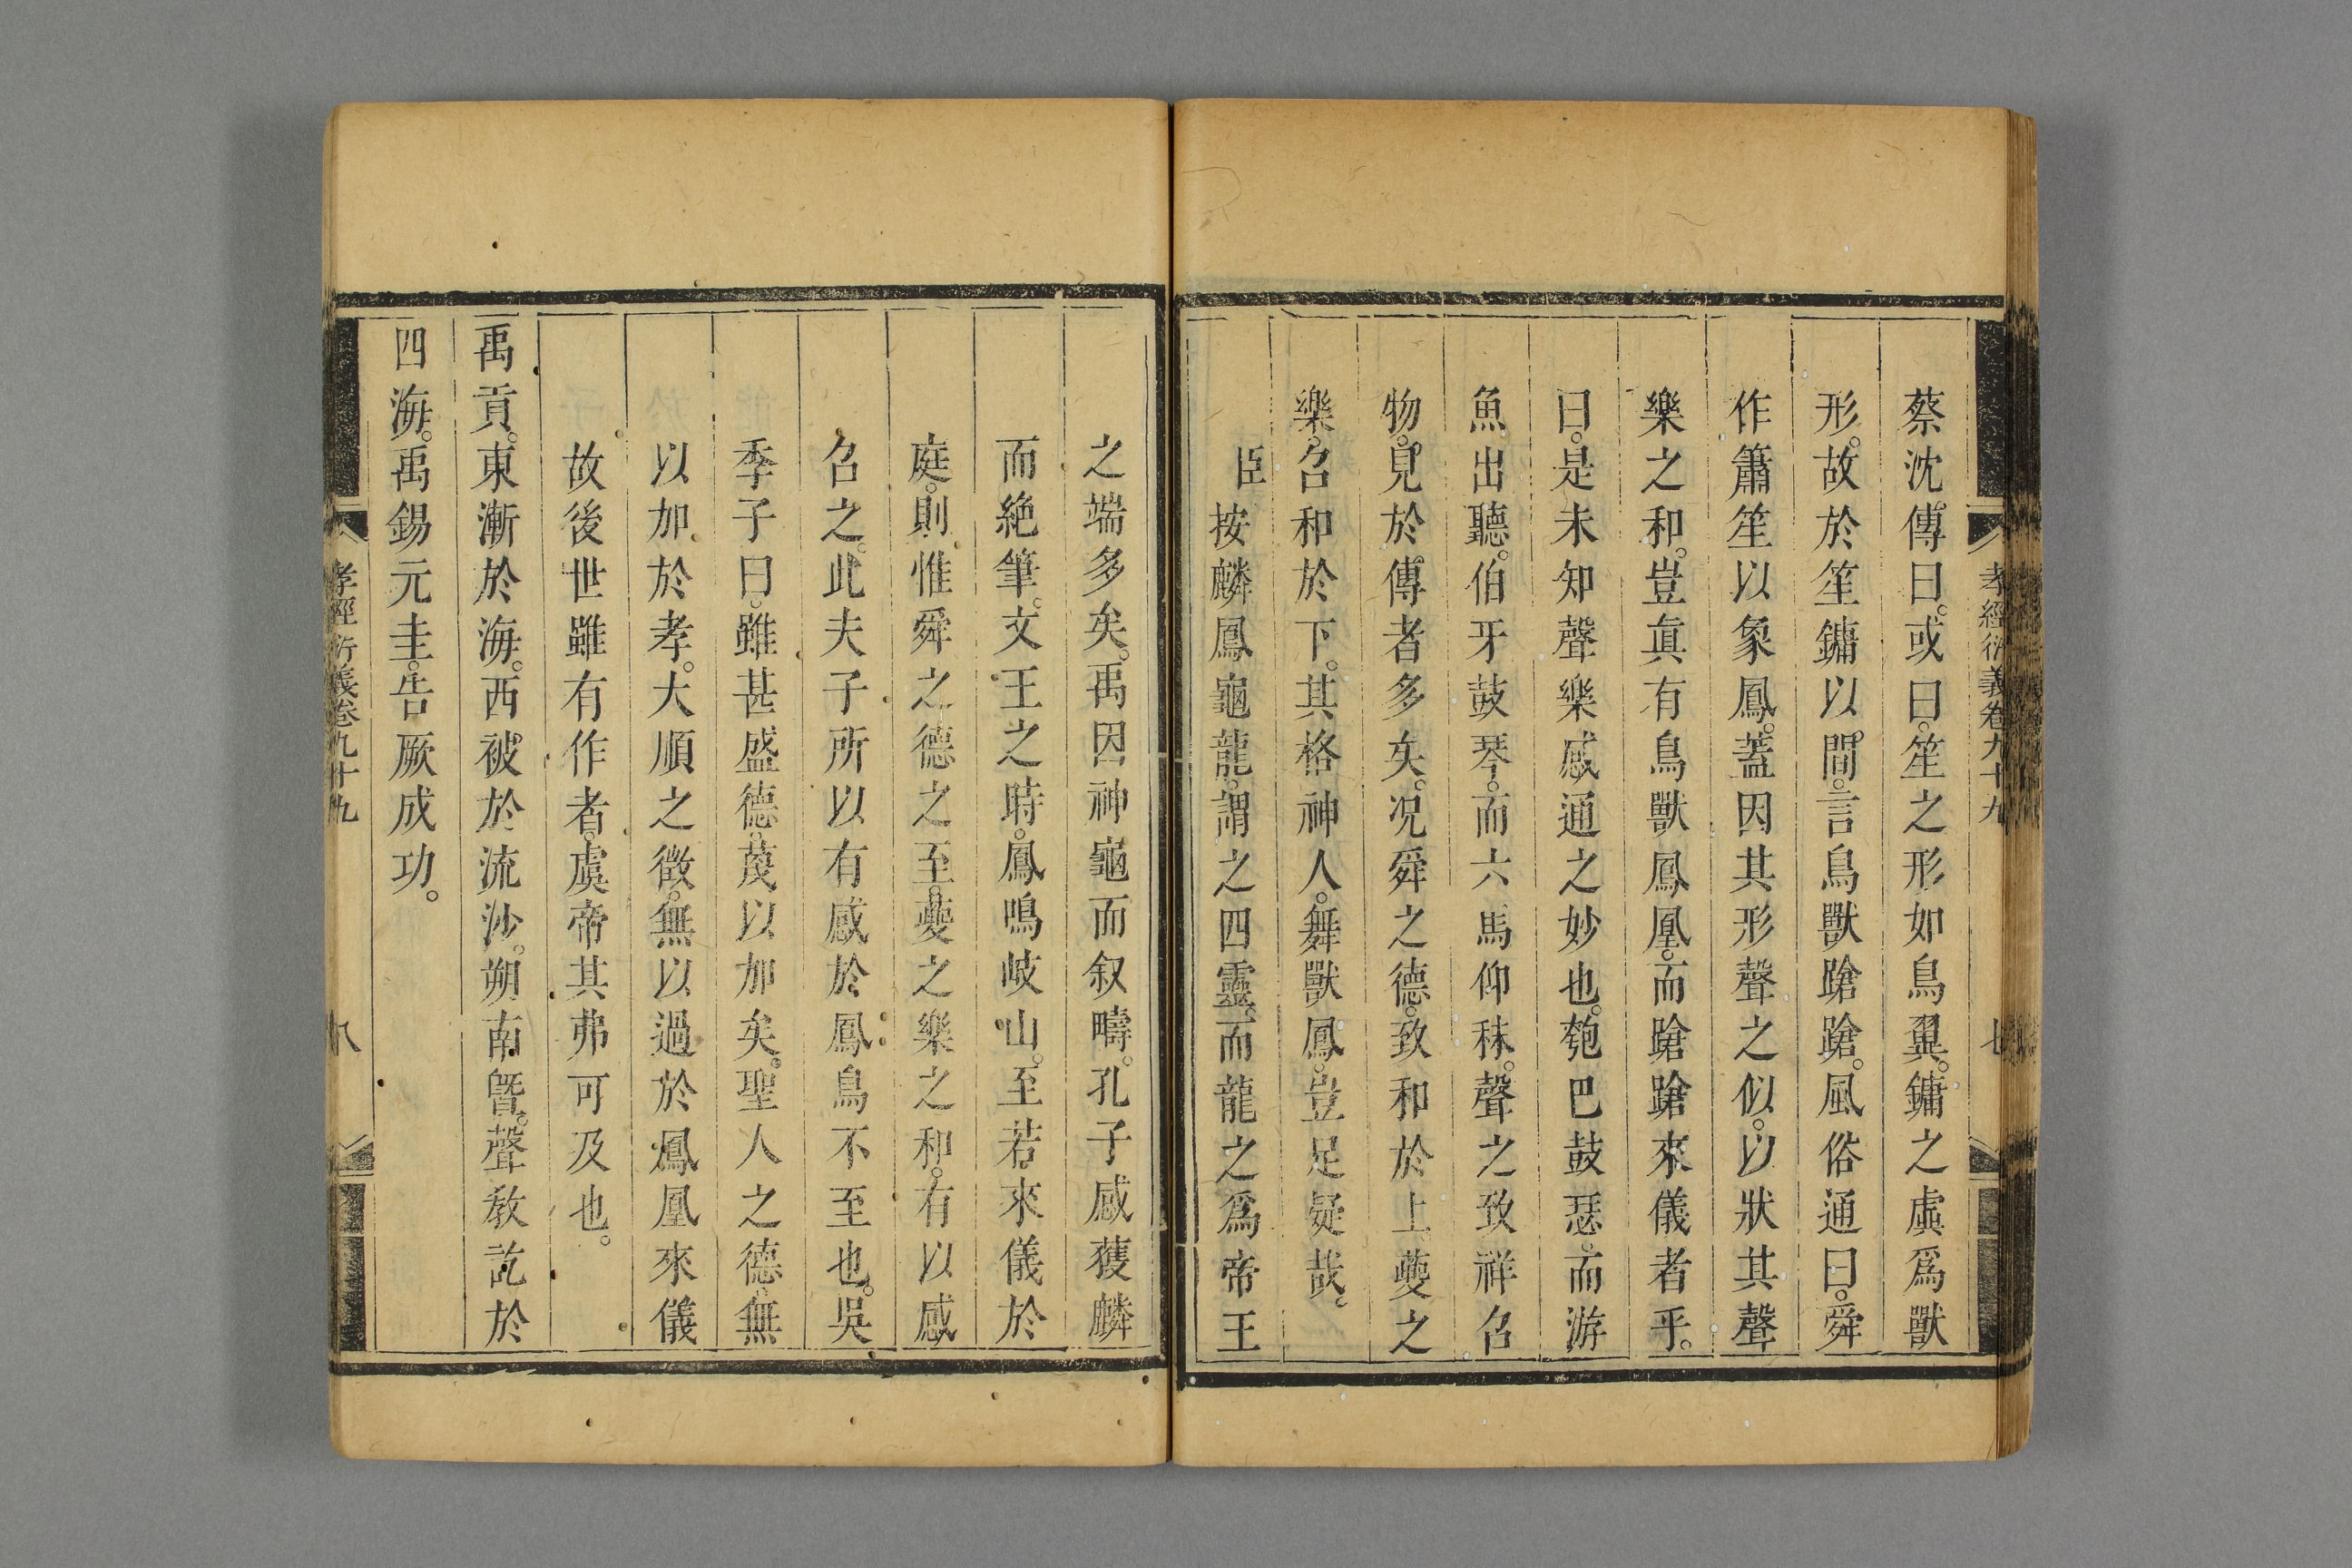 孝經衍義卷九十九 七
蔡沈傳曰。或曰。笙之形如鳥翼。鏞之虡爲獸
形。故於笙鏞以間。言鳥獸蹌蹌。風俗通曰。舜
作簫笙以象鳳。蓋因其形聲之似。以狀其聲
樂之和。豈眞有鳥獸鳳凰。而蹌蹌來儀者乎。
曰。是未知聲樂感通之妙也。匏巴鼓瑟。而游
魚出聽。伯牙鼓琴。而六馬仰秣。聲之致祥召
物。見於傳者多矣。况舜之德。致和於上。夔之
樂。召和於下。其格神人。舞獸鳳。豈足疑哉。
臣按麟鳳龜龍。謂之四靈。而龍之爲帝王
之端多矣。禹因神龜而叙疇。孔子感獲麟
而絶筆。文王之時。鳳鳴岐山。至若來儀於
庭。則惟舜之德之至。夔之樂之和。有以感
召之。此夫子所以有感於鳳鳥不至也。吳
季子曰。雖甚盛德。蔑以加矣。聖人之德。無
以加於孝。大順之徵。無以過於鳳凰來儀
故後世雖有作者。虞帝其弗可及也。
禹貢。東漸於海。西被於流沙。朔南曁。聲教訖於
四海。禹錫元圭。告厥成功。
孝經衍義卷九十九 八